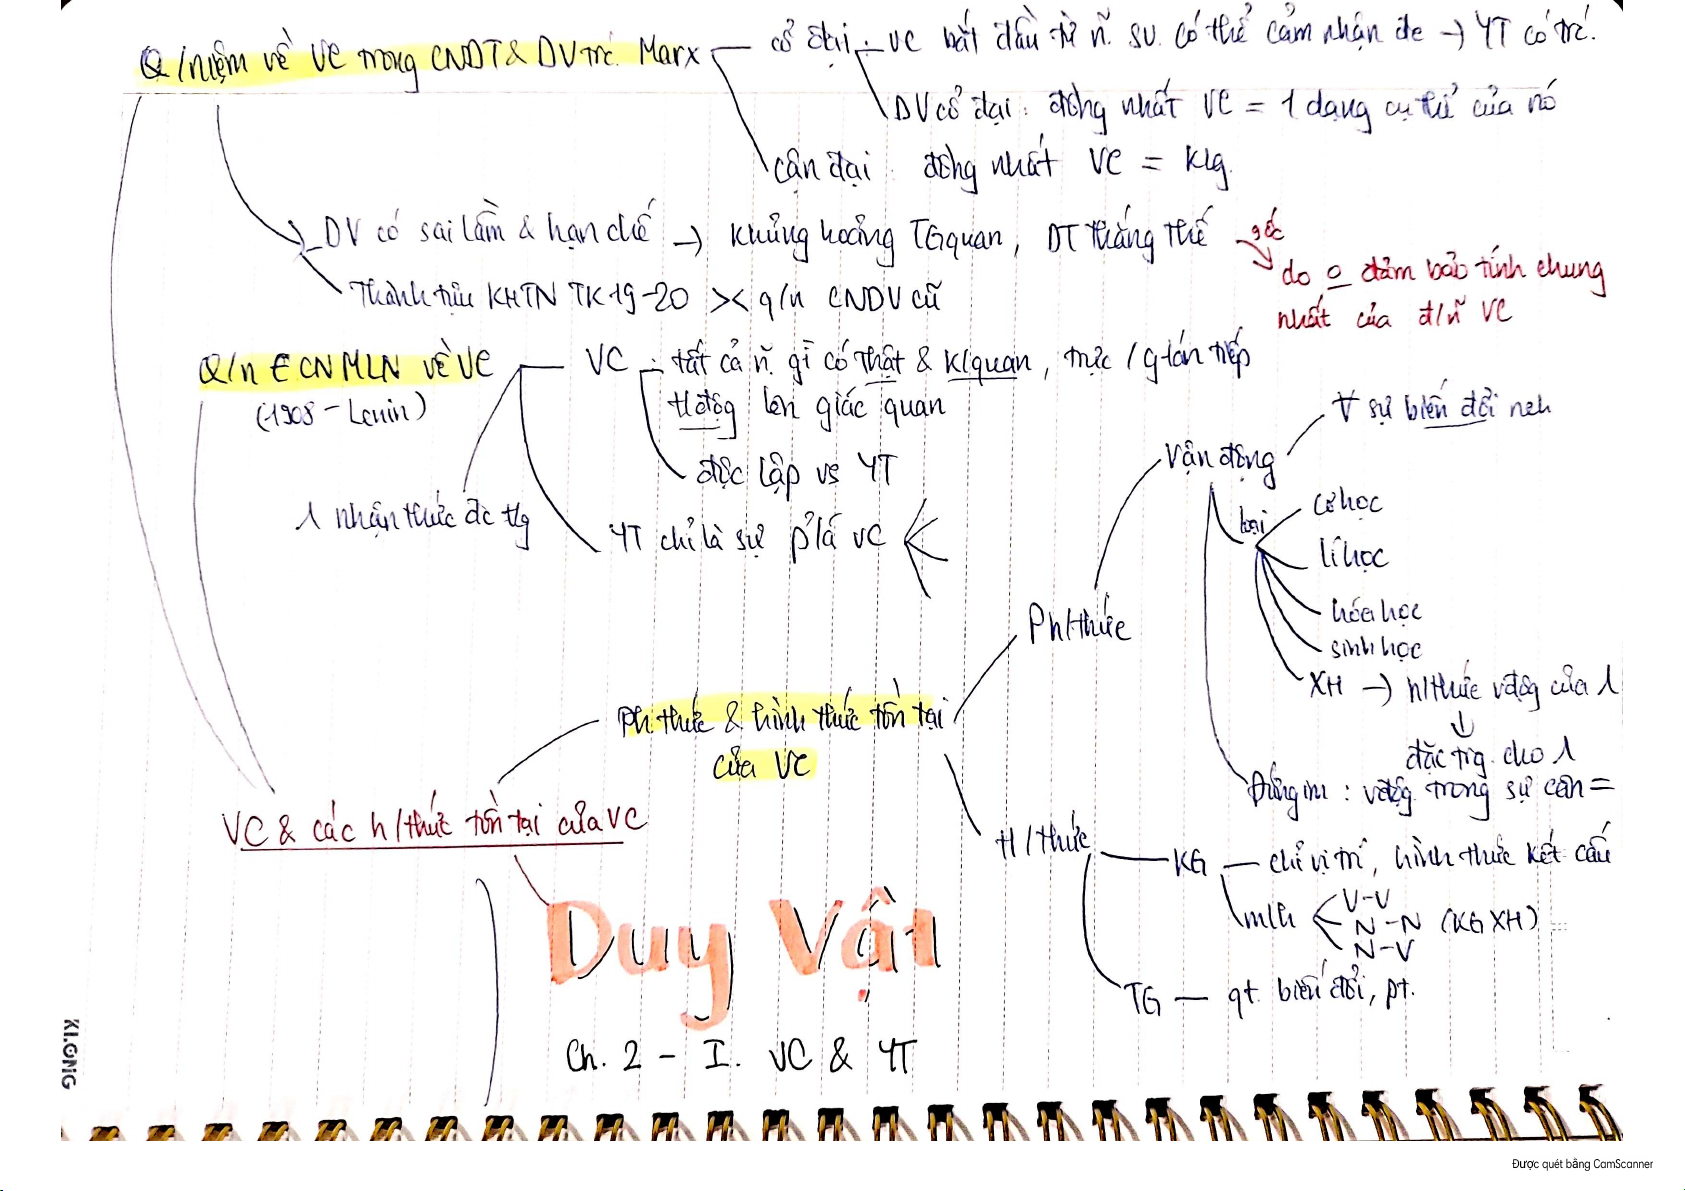 Q/niệm về VC trong CNDT & DV trc Marx
cổ đại : VC bắt đầu từ ñ SV có thể cảm nhận đc → YT có trc
DV cổ đại : đồng nhất VC = 1 dạng cụ thể của nó
cận đại : đồng nhất VC = Klg
DV có sai lầm & hạn chế → khủng hoảng TGquan, DT thắng thế
gốc
do o đảm bảo tính chung
nhất của đ/n VC
Thành tựu KHTN TK 19-20 >< q/n CNDV cũ
Q/n CNMLN về VC
(1908 - Lenin)
VC : tất cả ñ gì có thật & k/quan, trực / gián tiếp
tđộng lên giác quan
độc lập vs YT
nhận thức đc
YT chỉ là sự p/á VC
Ph/thức
Vận động
∀ sự biến đổi nch
loại
cơ học
lí học
hóa học
sinh học
XH → h/thức vđộg của
↓
đặc trg cho
Đứng im : vđộg trong sự cân =
Ph.thức & hình thức tồn tại
của VC
VC & các h/thức tồn tại của VC
H/thức
KG — chỉ vị trí, hình thức kết cấu
mlh
V-V
N-N (KG XH) ...
N-V
TG — qt biến đổi, pt.
Duy Vật
Ch. 2 - I. VC & YT
KLONG
Được quét bằng CamScanner